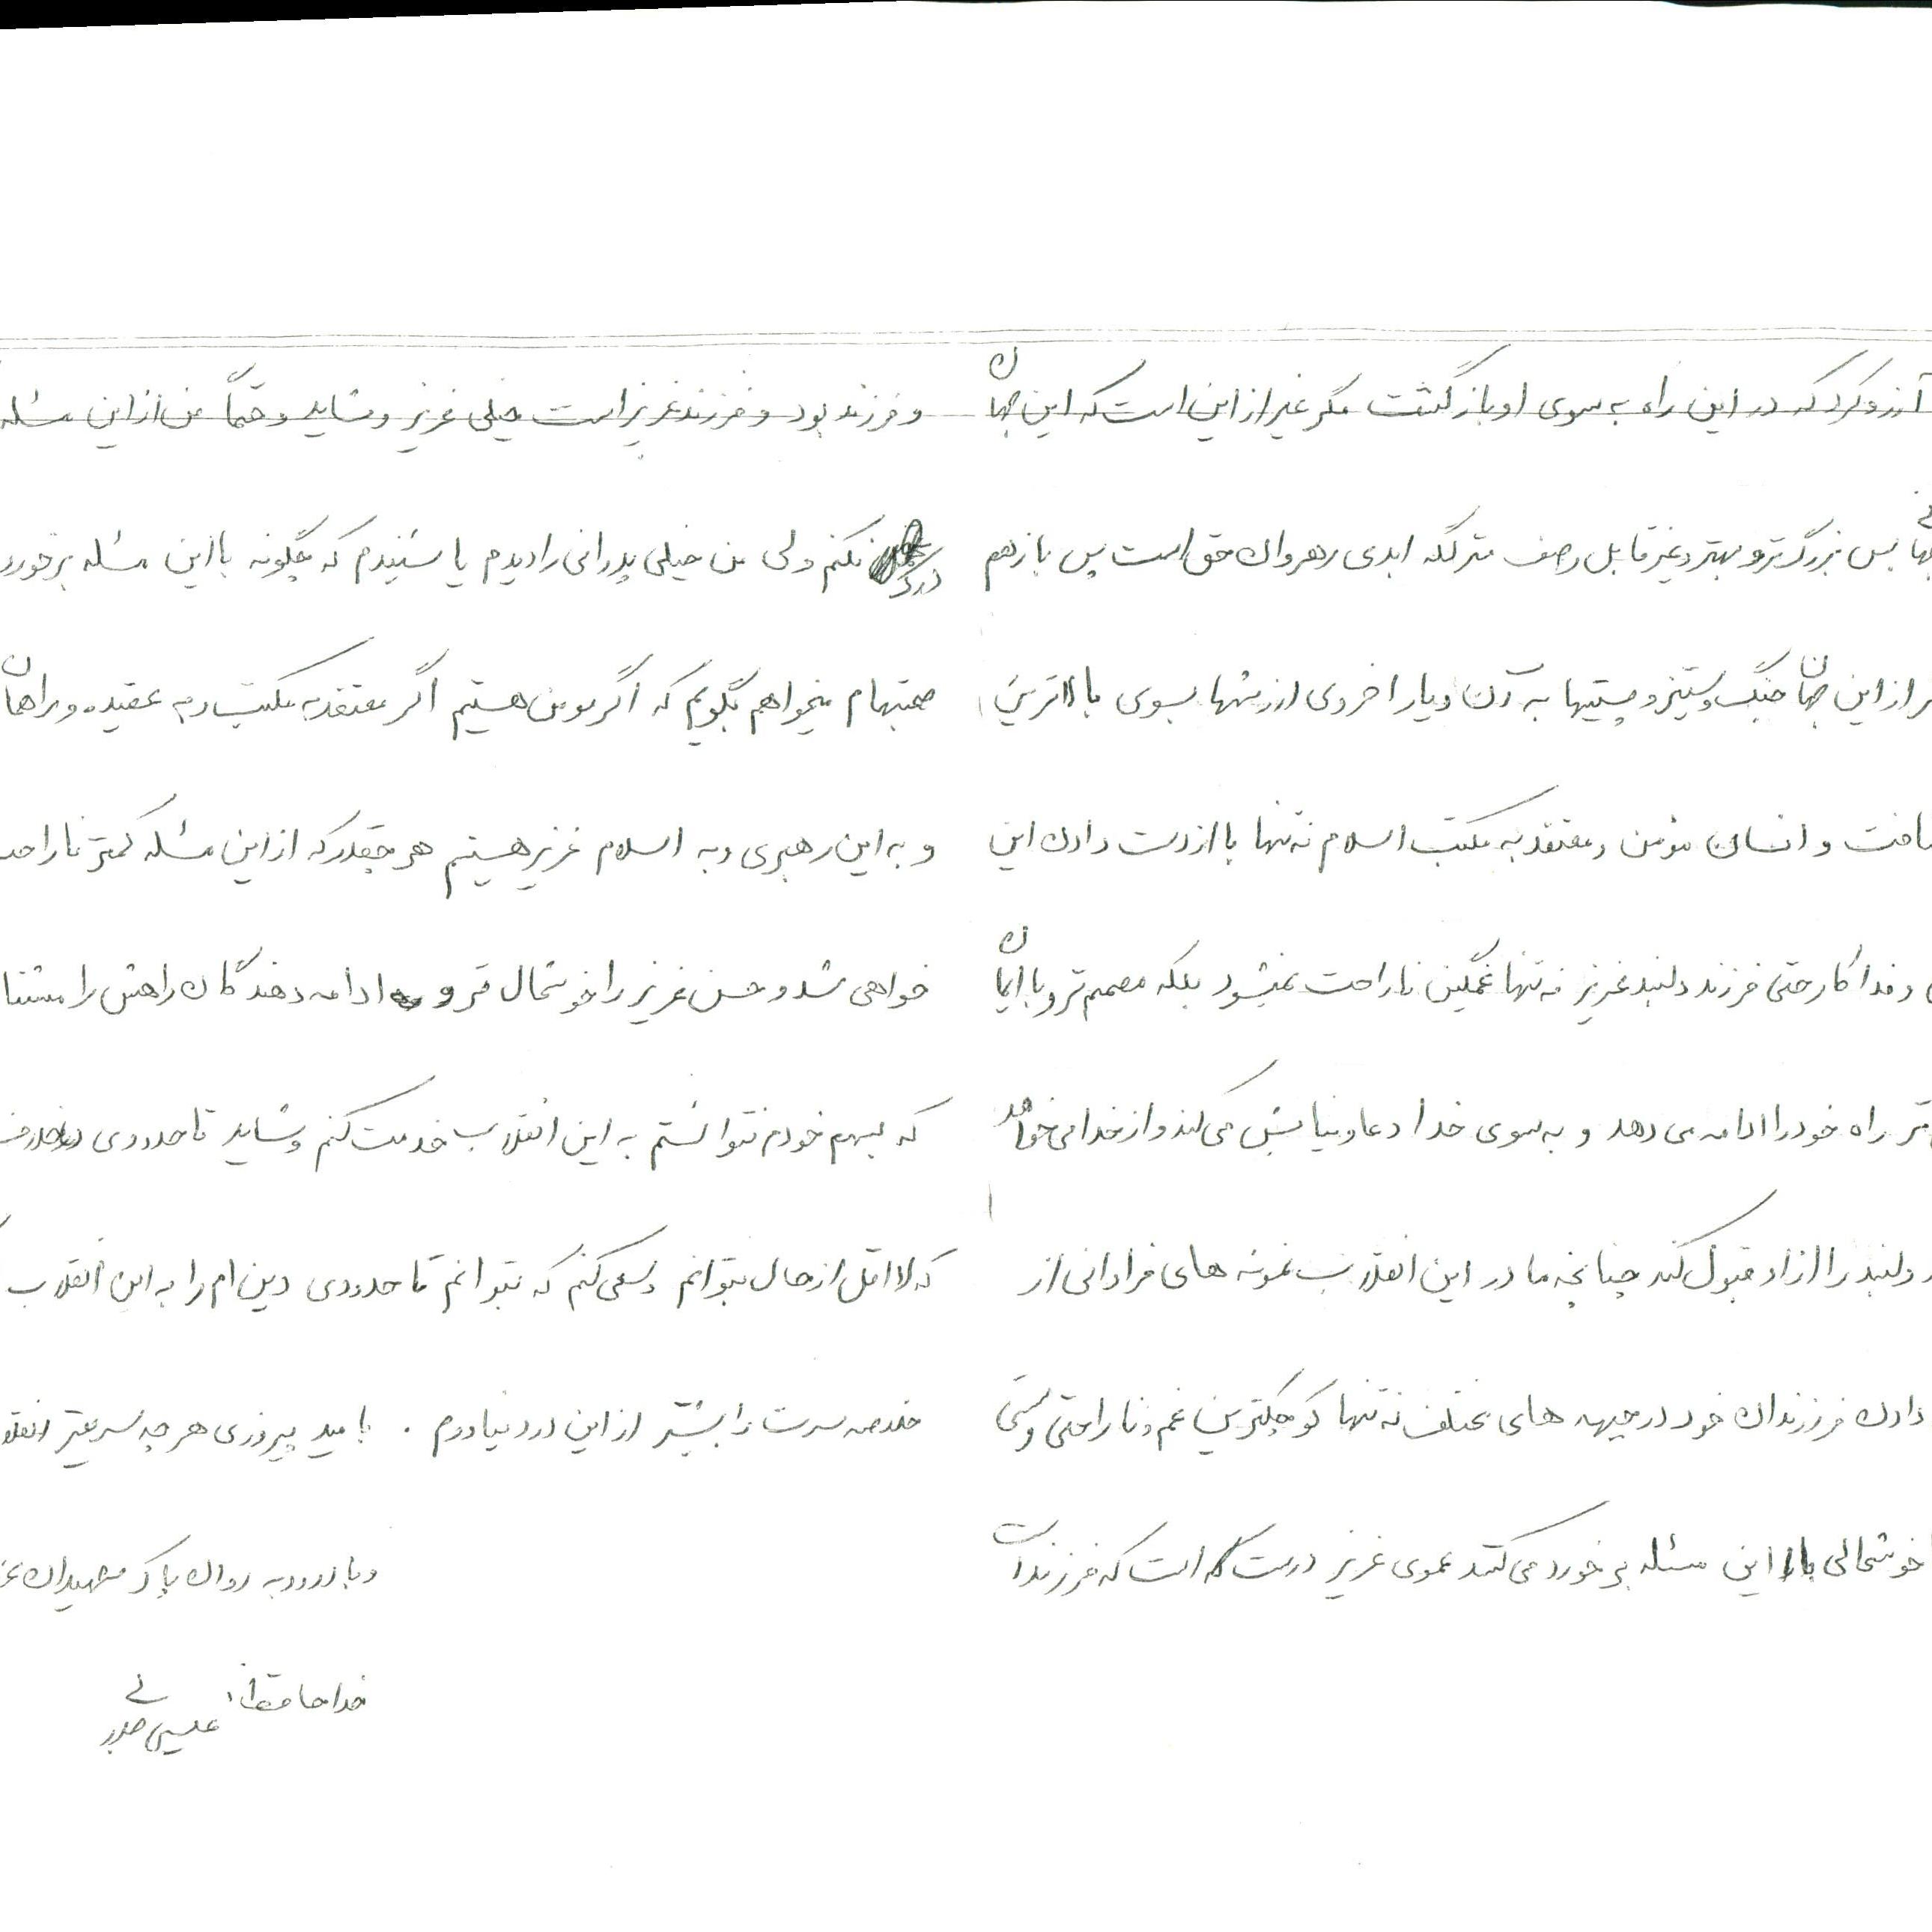 آرزو کرد که در این راه به سوی او بازگشت مگر غیر از این است که این جهان
بس بزرگ تر و بهتر و غیر قابل وصف منزلگه ابدی رهروان حق است پس باز هم
از این جهان جنگ و ستیز و پستیها به آن دیار اخروی ارزشها بسوی بالاترین
و انسان مؤمن و معتقد به مکتب اسلام نه تنها با از دست دادن این
و فداکار حتی فرزند دلبند عزیز نه تنها غمگین ناراحت نمیشود بلکه مصمم تر و با ایمان
تر راه خود را ادامه می دهد و به سوی خدا دعا و نیایش می کند و از خدا می خواهد
دلبند را از او قبول کند چنانچه ما در این انقلاب نمونه های فراوانی از
دادن فرزندان خود در جبهه های مختلف نه تنها کوچکترین غم و ناراحتی
خوشحالی با این مسئله برخورد می کنند عموی عزیز درست است که فرزند
و فرزند بود و فرزند عزیز است خیلی عزیز و شاید و حتماً من از این مسئله
نکنم ولی من خیلی پدرانی را دیدم یا شنیدم که چگونه با این مسئله برخورد
صحبتهام میخواهم بگویم که اگر مومن هستیم اگر معتقد به مکتب و به عقیده و راهمان
و به این رهبری و به اسلام عزیز هستیم هر چقدر که از این مسئله کمتر
خواهی شد و حسن عزیز را خوشحال تر و ادامه دهندگان راهش را
که بسهم خودم نتوانستم به این انقلاب خدمت کنم و شاید تا حدودی
که لااقل از حال بتوانم و سعی کنم که بتوانم تا حدودی دین ام را به این انقلاب
خلاصه سرت را بیشتر از این درد نیاورم . بامید پیروزی هر چه سریعتر
و با درود به روان پاک شهیدان
خداحافظ
عیسی